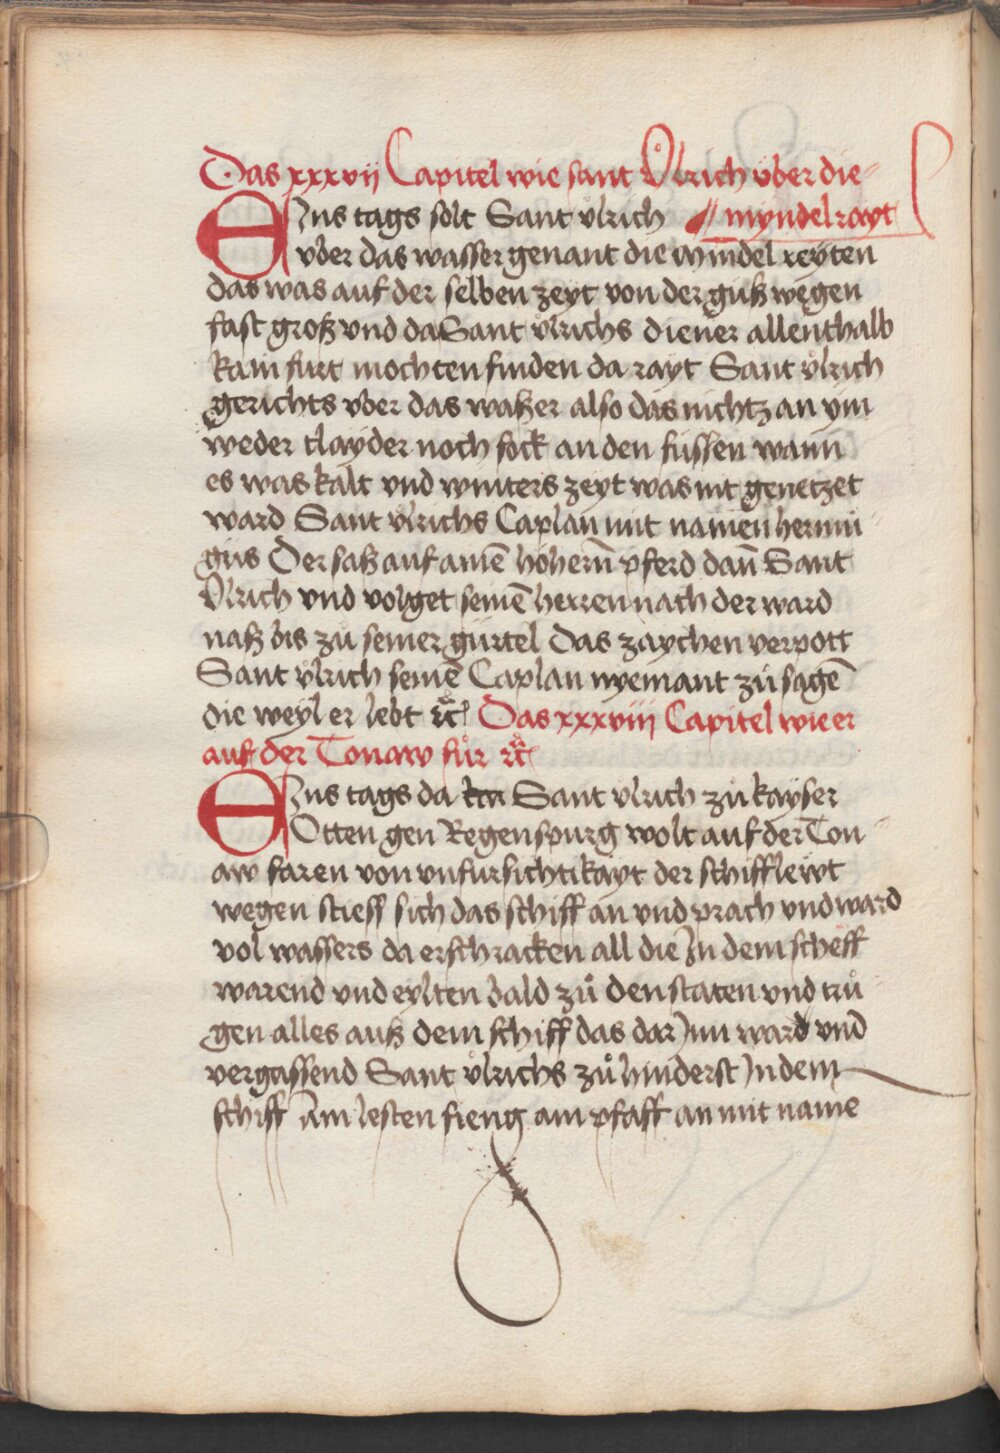 Das xxxvij Capitel wie sant Ůlrich v̈ber die
EJns tags solt Sant vlrich myndel rayt
vber das wasser genant die mindel reyten
das was auf der selben zeyt von der guß wegen
fast groß vnd da Sant vlrichs diener allenthalb
kain furt mochten finden da rayt Sant vͦlrich
gerichts vber das waßer also das nichtz an ym
weder clayder noch sock an den füssen wann
es was kalt vnd winters zeyt was nit genetzet
ward Sant vlrichs Caplan mit namen herini
gus Der saß auf aineͫ hohern̄ pferd dan̄ Sant
Vlrich vnd volget seinē herren nach der ward
naß bis zů seiner gürtel Das zaychen verpott
Sant vͦlrich seinē Caplan nyemant zů sagē
die weyl er lebt ꝛc Das xxxviii Capitel wie er
auf der Tonaw fůr ꝛc
EJns tags da Sant vlrich zů kayser
Otten gen Regenspurg wolt auf der Ton
aw faren von vnfursichtikayt der schifflewt
wegen stieff sich das schiff an vnd prach vnd ward
vol wassers da erschracken all die Jn dem scheff
warend vnd eylten bald zů den staten vnd trů
gen alles auß dem schiff das dar Jnn ward vnd
vergassend Sant vͦlrichs zů hinderst Jn dem
schiff Am lesten fieng ain pfaff an mit name